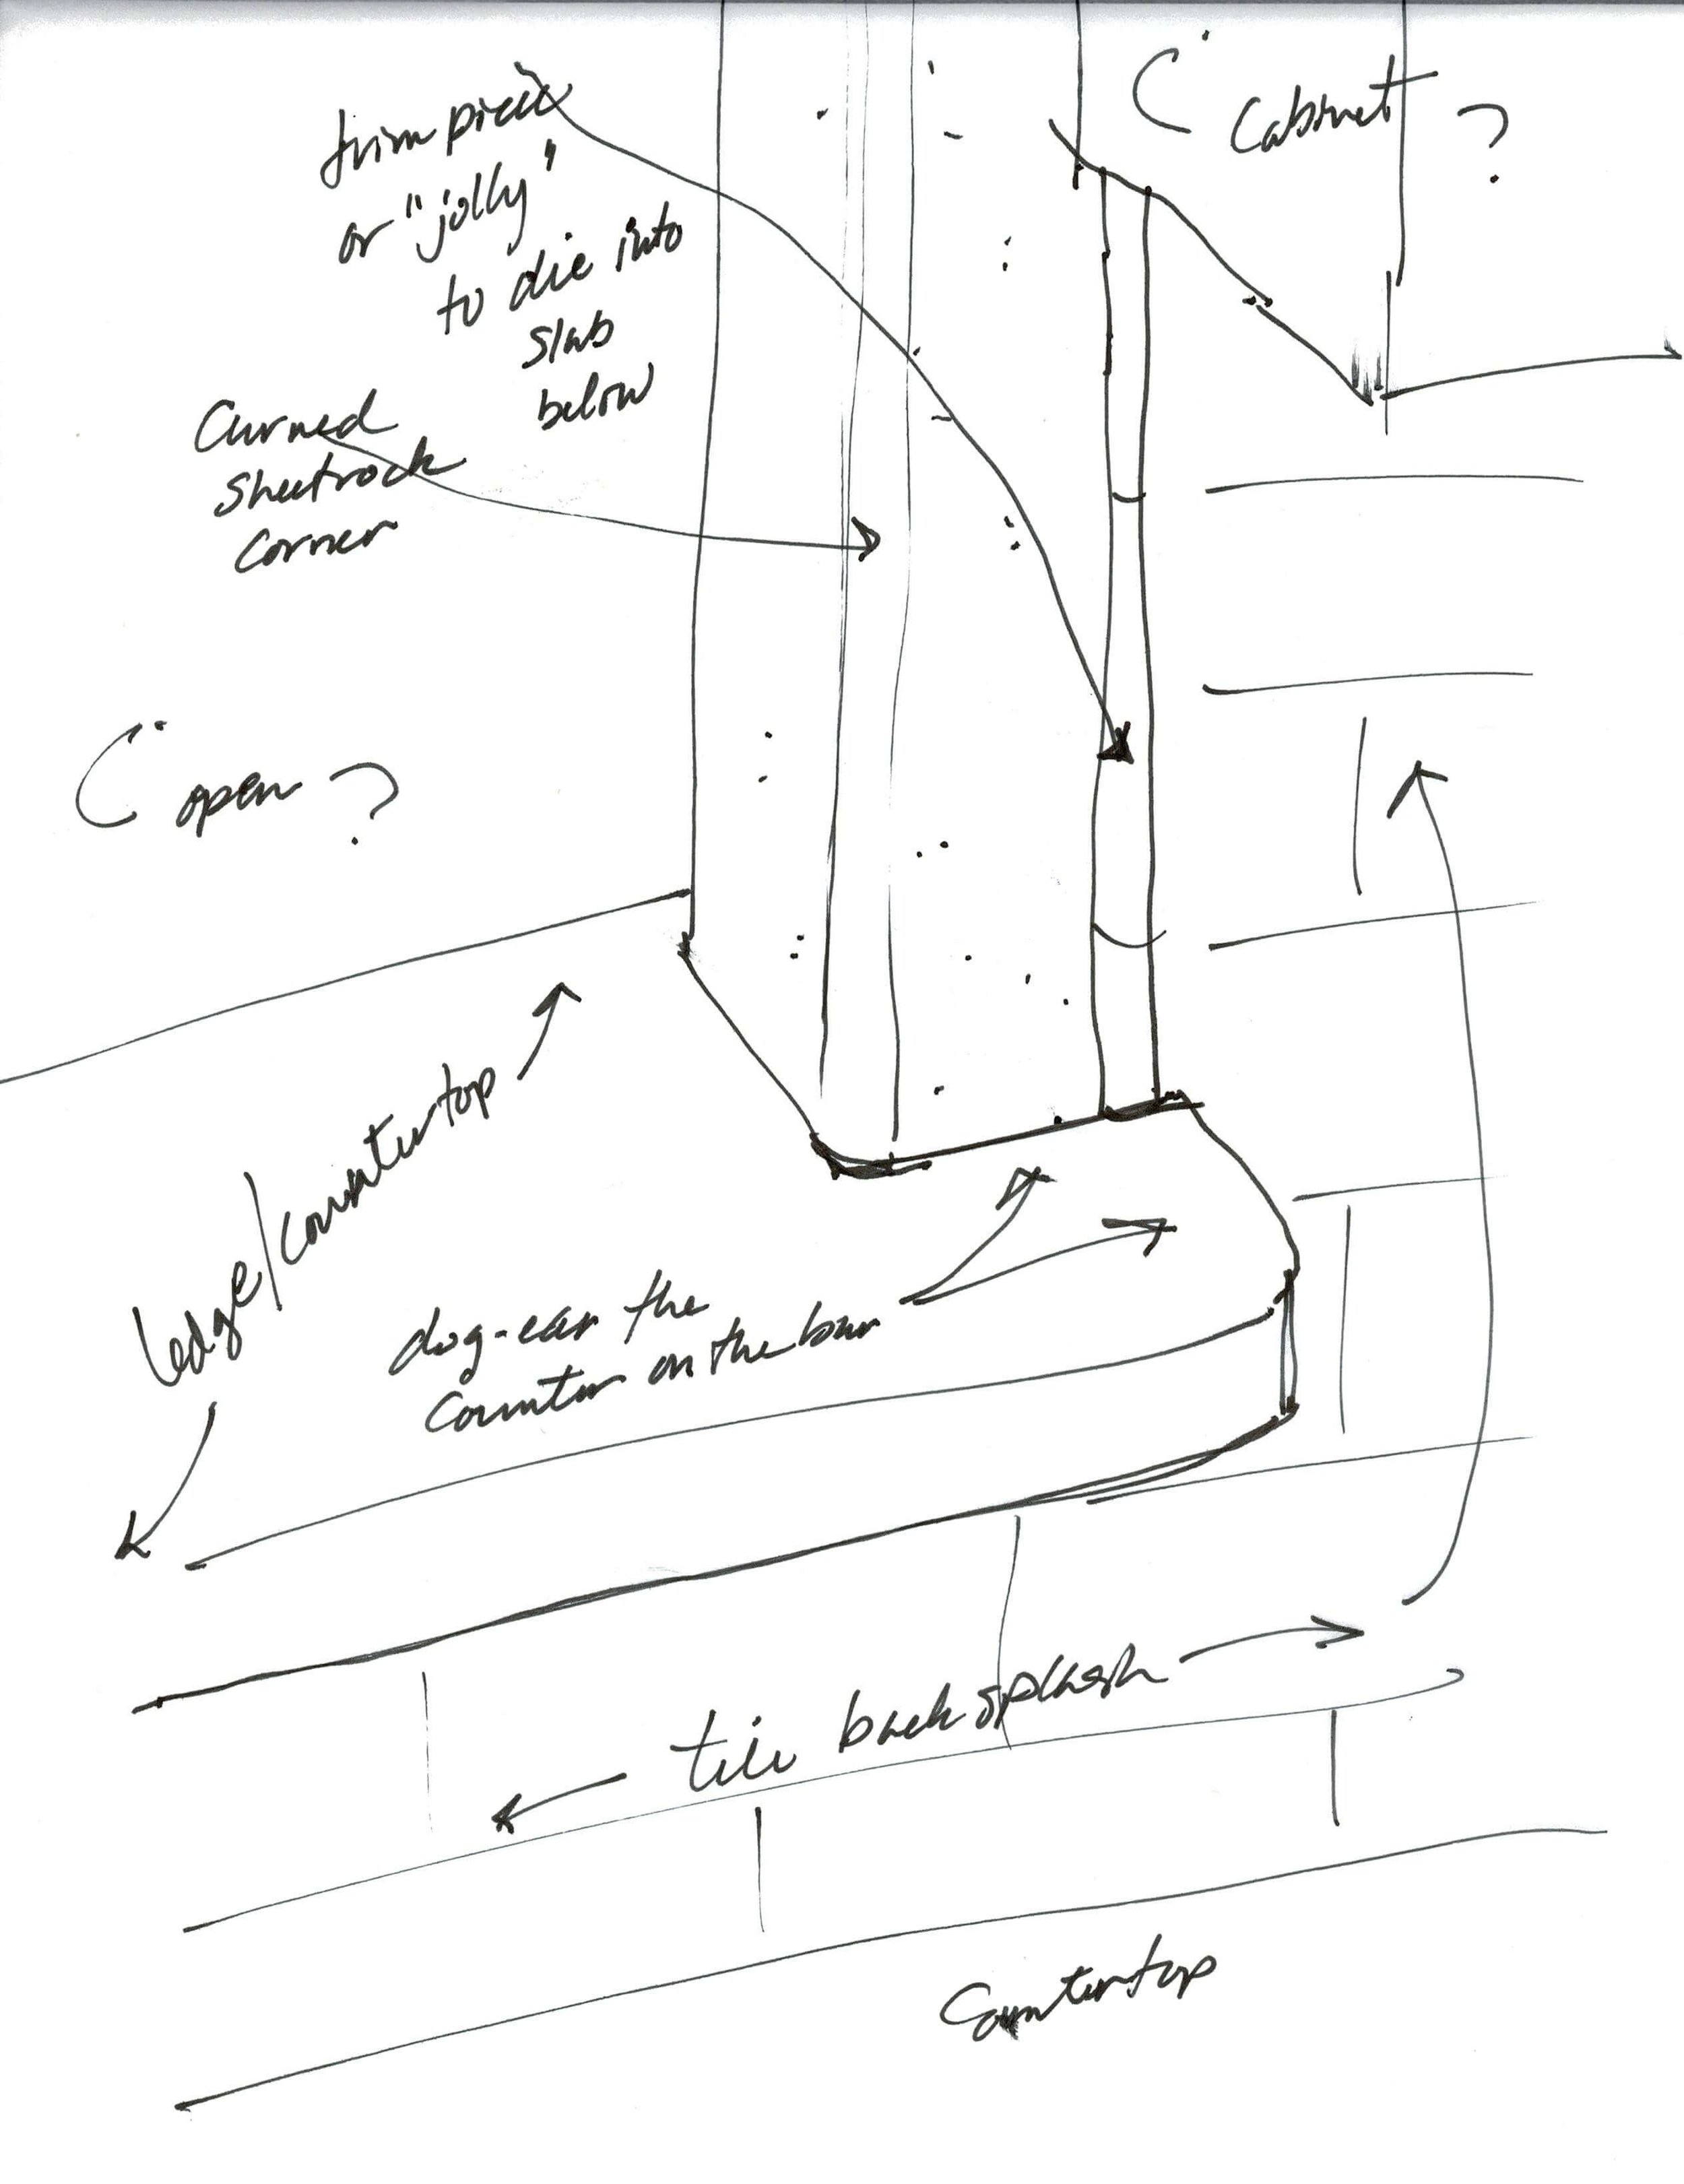 trim piece
or "jolly"
to die into
slab
below
Curved
sheetrock
corner
Cabinet
open
ledge/countertop
dog-ear the
counter on the bar
tile backsplash
Countertop